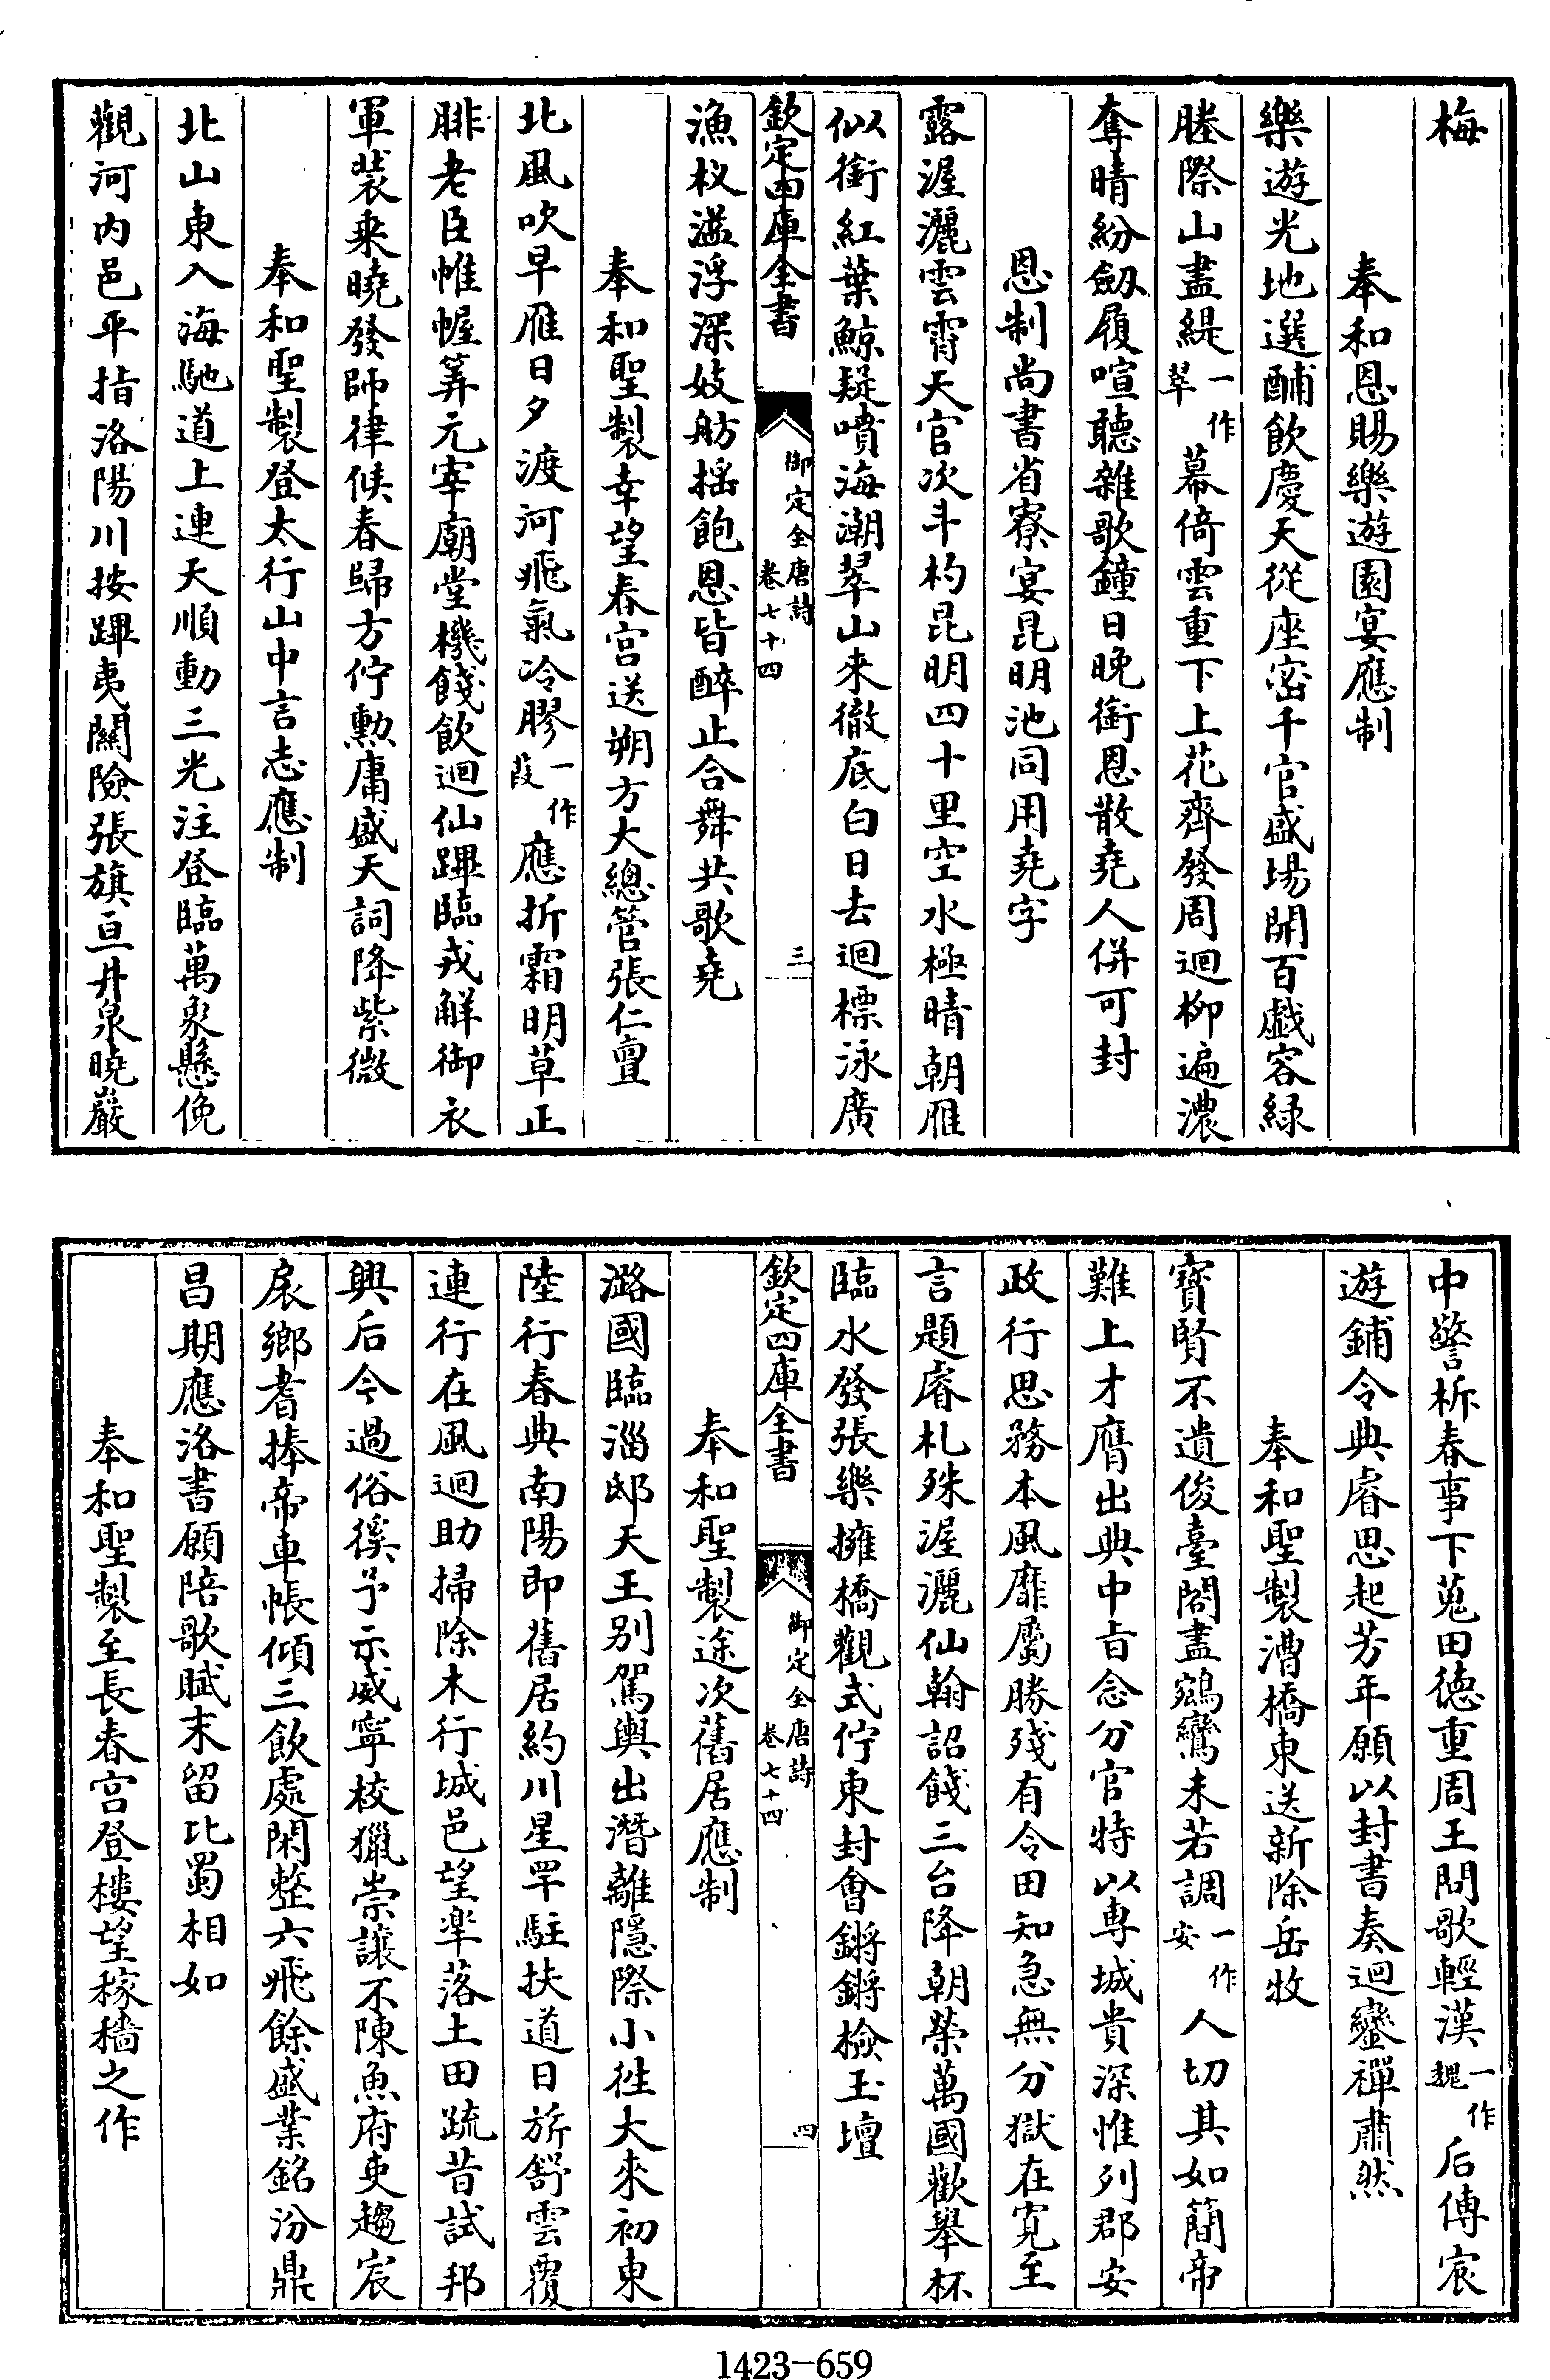 梅
奉和恩賜樂遊園宴應制
樂遊光地選酺飲慶天從座密千官盛場開百戲容緑
塍際山盡緹一作翠幕倚雲重下上花齊發周迴柳遍濃
奪晴紛劔履喧聽雜歌鐘日晚銜恩散堯人併可封
恩制尚書省寮宴昆明池同用堯字
露渥灑雲霄天官次斗杓昆明四十里空水極晴朝雁
似銜紅葉鯨疑噴海潮翠山來徹底白日去迴標泳廣
欽定四庫全書
御定全唐詩
卷七十四
三
漁杈溢浮深妓舫揺飽恩皆醉止合舞共歌堯
奉和聖製幸望春宫送朔方大總管張仁亶
北風吹早雁日夕渡河飛氣冷膠一作葭應折霜明草正
腓老臣帷幄筭元宰廟堂機餞飲迴仙蹕臨戎解御衣
軍裝乗曉發師律候春歸方佇勲庸盛天詞降紫微
奉和聖製登太行山中言志應制
北山東入海馳道上連天順動三光注登臨萬象懸俛
觀河内邑平指洛陽川按蹕夷關險張旗亘井泉曉巖
中警柝春事下蒐田徳重周王問歌輕漢一作魏后傳宸
遊鋪令典睿思起芳年願以封書奏迴鑾禪肅然
奉和聖製漕橋東送新除岳牧
寳賢不遺俊臺閣盡鵷鸞未若調一作安人切其如簡帝
難上才膺出典中旨念分官特以専城貴深惟列郡安
政行思務本風靡屬勝殘有令田知急無分獄在寛至
言題睿札殊渥灑仙翰詔餞三台降朝榮萬國歡舉杯
臨水發張樂擁橋觀式佇東封會鏘鏘檢玉壇
欽定四庫全書
御定全唐詩
卷七十四
四
奉和聖製途次舊居應制
潞國臨淄邸天王别駕輿出潛離隱際小徃大來初東
陸行春典南陽即舊居約川星罕駐扶道日旂舒雲覆
連行在風迴助掃除木行城邑望臯落土田疏昔試邦
興后今過俗徯予示威寧校獵崇讓不陳魚府吏趨宸
扆鄉耆捧帝車帳傾三飲處閑整六飛餘盛業銘汾鼎
昌期應洛書願陪歌賦末留比蜀相如
奉和聖製至長春宫登樓望稼穡之作
1423-659